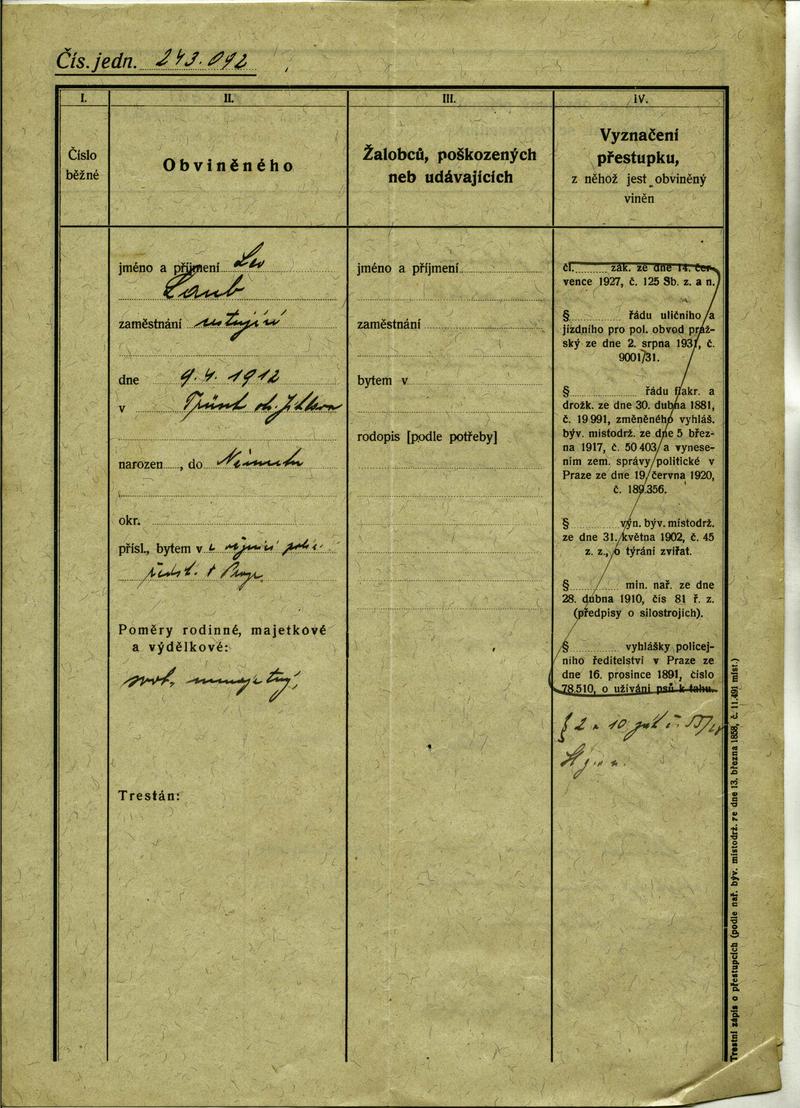 Čís. jedn. 243.092
I.
Číslo
běžné
II.
Obviněného
III.
Žalobců, poškozených
neb udávajících
IV.
Vyznačení
přestupku,
z něhož jest obviněný
viněn
jméno a příjmení Leo
Laub
zaměstnání
dne 9. 4. 1912
v
narozen , do Německa
okr.
přísl., bytem v
Poměry rodinné, majetkové
a výdělkové:
svob. nemajetný,
Trestán:
jméno a příjmení
zaměstnání
bytem v
rodopis [podle potřeby]
čl. zák. ze dne 14. čer-
vence 1927, č. 125 Sb. z. a n.
§ řádu uličního a
jízdního pro pol. obvod praž-
ský ze dne 2. srpna 1931, č.
9001/31.
§ řádu fiakr. a
drožk. ze dne 30. dubna 1881,
č. 19 991, změněného vyhláš.
býv. místodrž. ze dne 5 břez-
na 1917, č. 50 403 a vynese-
ním zem. správy politické v
Praze ze dne 19 června 1920,
č. 189.356.
§ výn. býv. místodrž.
ze dne 31. května 1902, č. 45
z. z., o týrání zvířat.
§ min. nař. ze dne
28. dubna 1910, čís 81 ř. z.
(předpisy o silostrojích).
§ vyhlášky policej-
ního ředitelství v Praze ze
dne 16. prosince 1891, číslo
78.510, o užívání psů k tahu.
§ 2 a 10 zák č.
Trestní zápis o přestupcích (podle nař. býv. místodrž. ze dne 13. března 1858, č. 11.491 míst.)